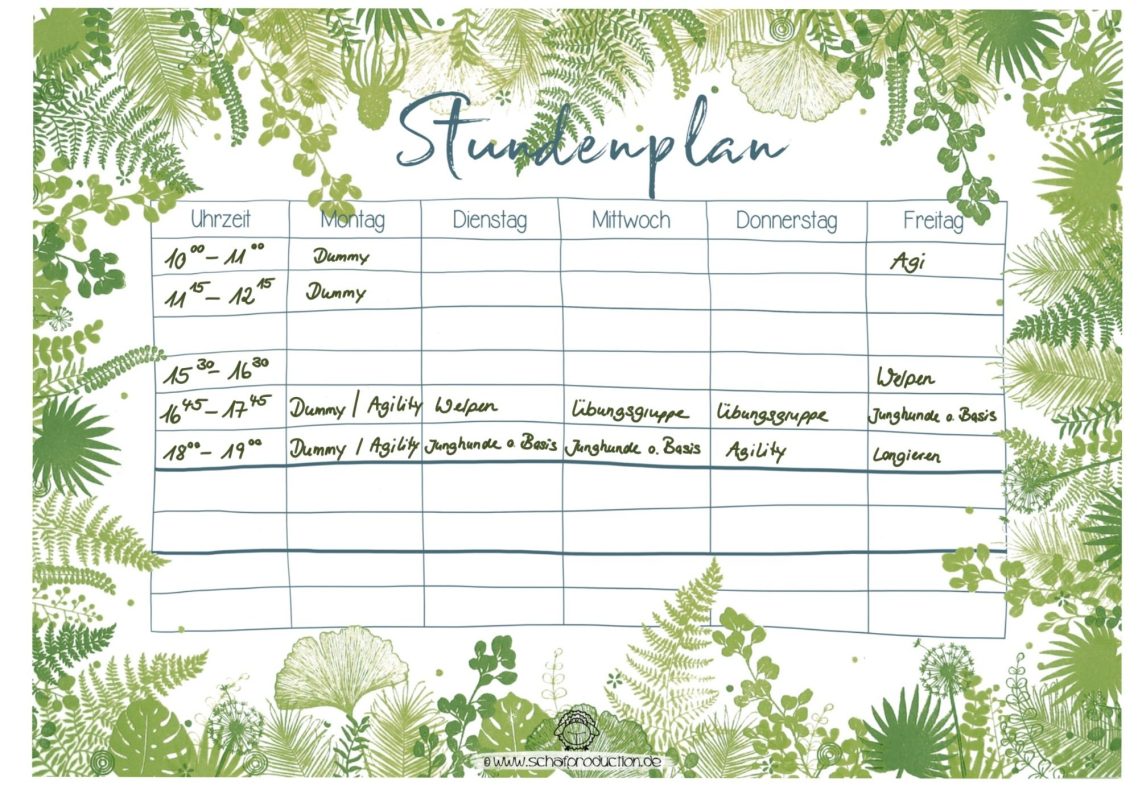 Stundenplan
Uhrzeit Montag Dienstag Mittwoch Donnerstag Freitag
10⁰⁰ – 11⁰⁰ Dummy Agi
11¹⁵ – 12¹⁵ Dummy
15³⁰ – 16³⁰ Welpen
16⁴⁵ – 17⁴⁵ Dummy / Agility Welpen Übungsgruppe Übungsgruppe Junghunde o. Basis
18⁰⁰ – 19⁰⁰ Dummy / Agility Junghunde o. Basis Junghunde o. Basis Agility Longieren
©www.schafproduction.de